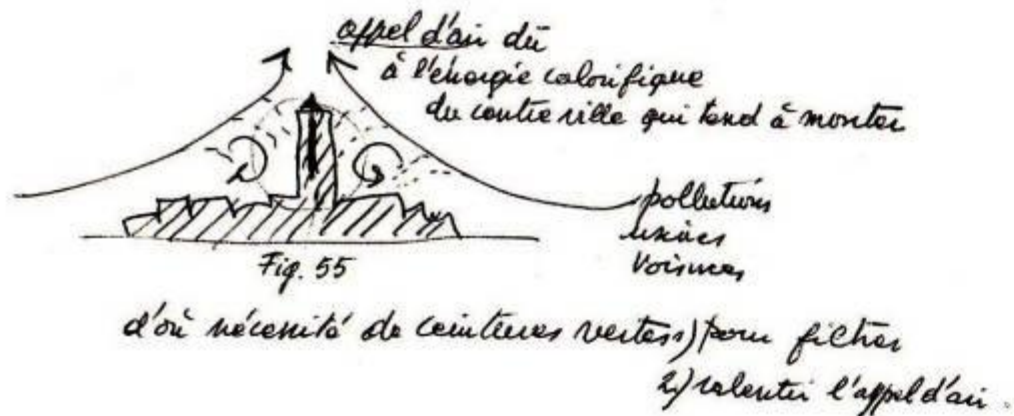 appel d'air dû
à l'énergie calorifique
du centre ville qui tend à monter
pollutions
usines
voisines
Fig. 55
d'où nécessité de ceintures vertes 1) pour filtrer
2) ralentir l'appel d'air.